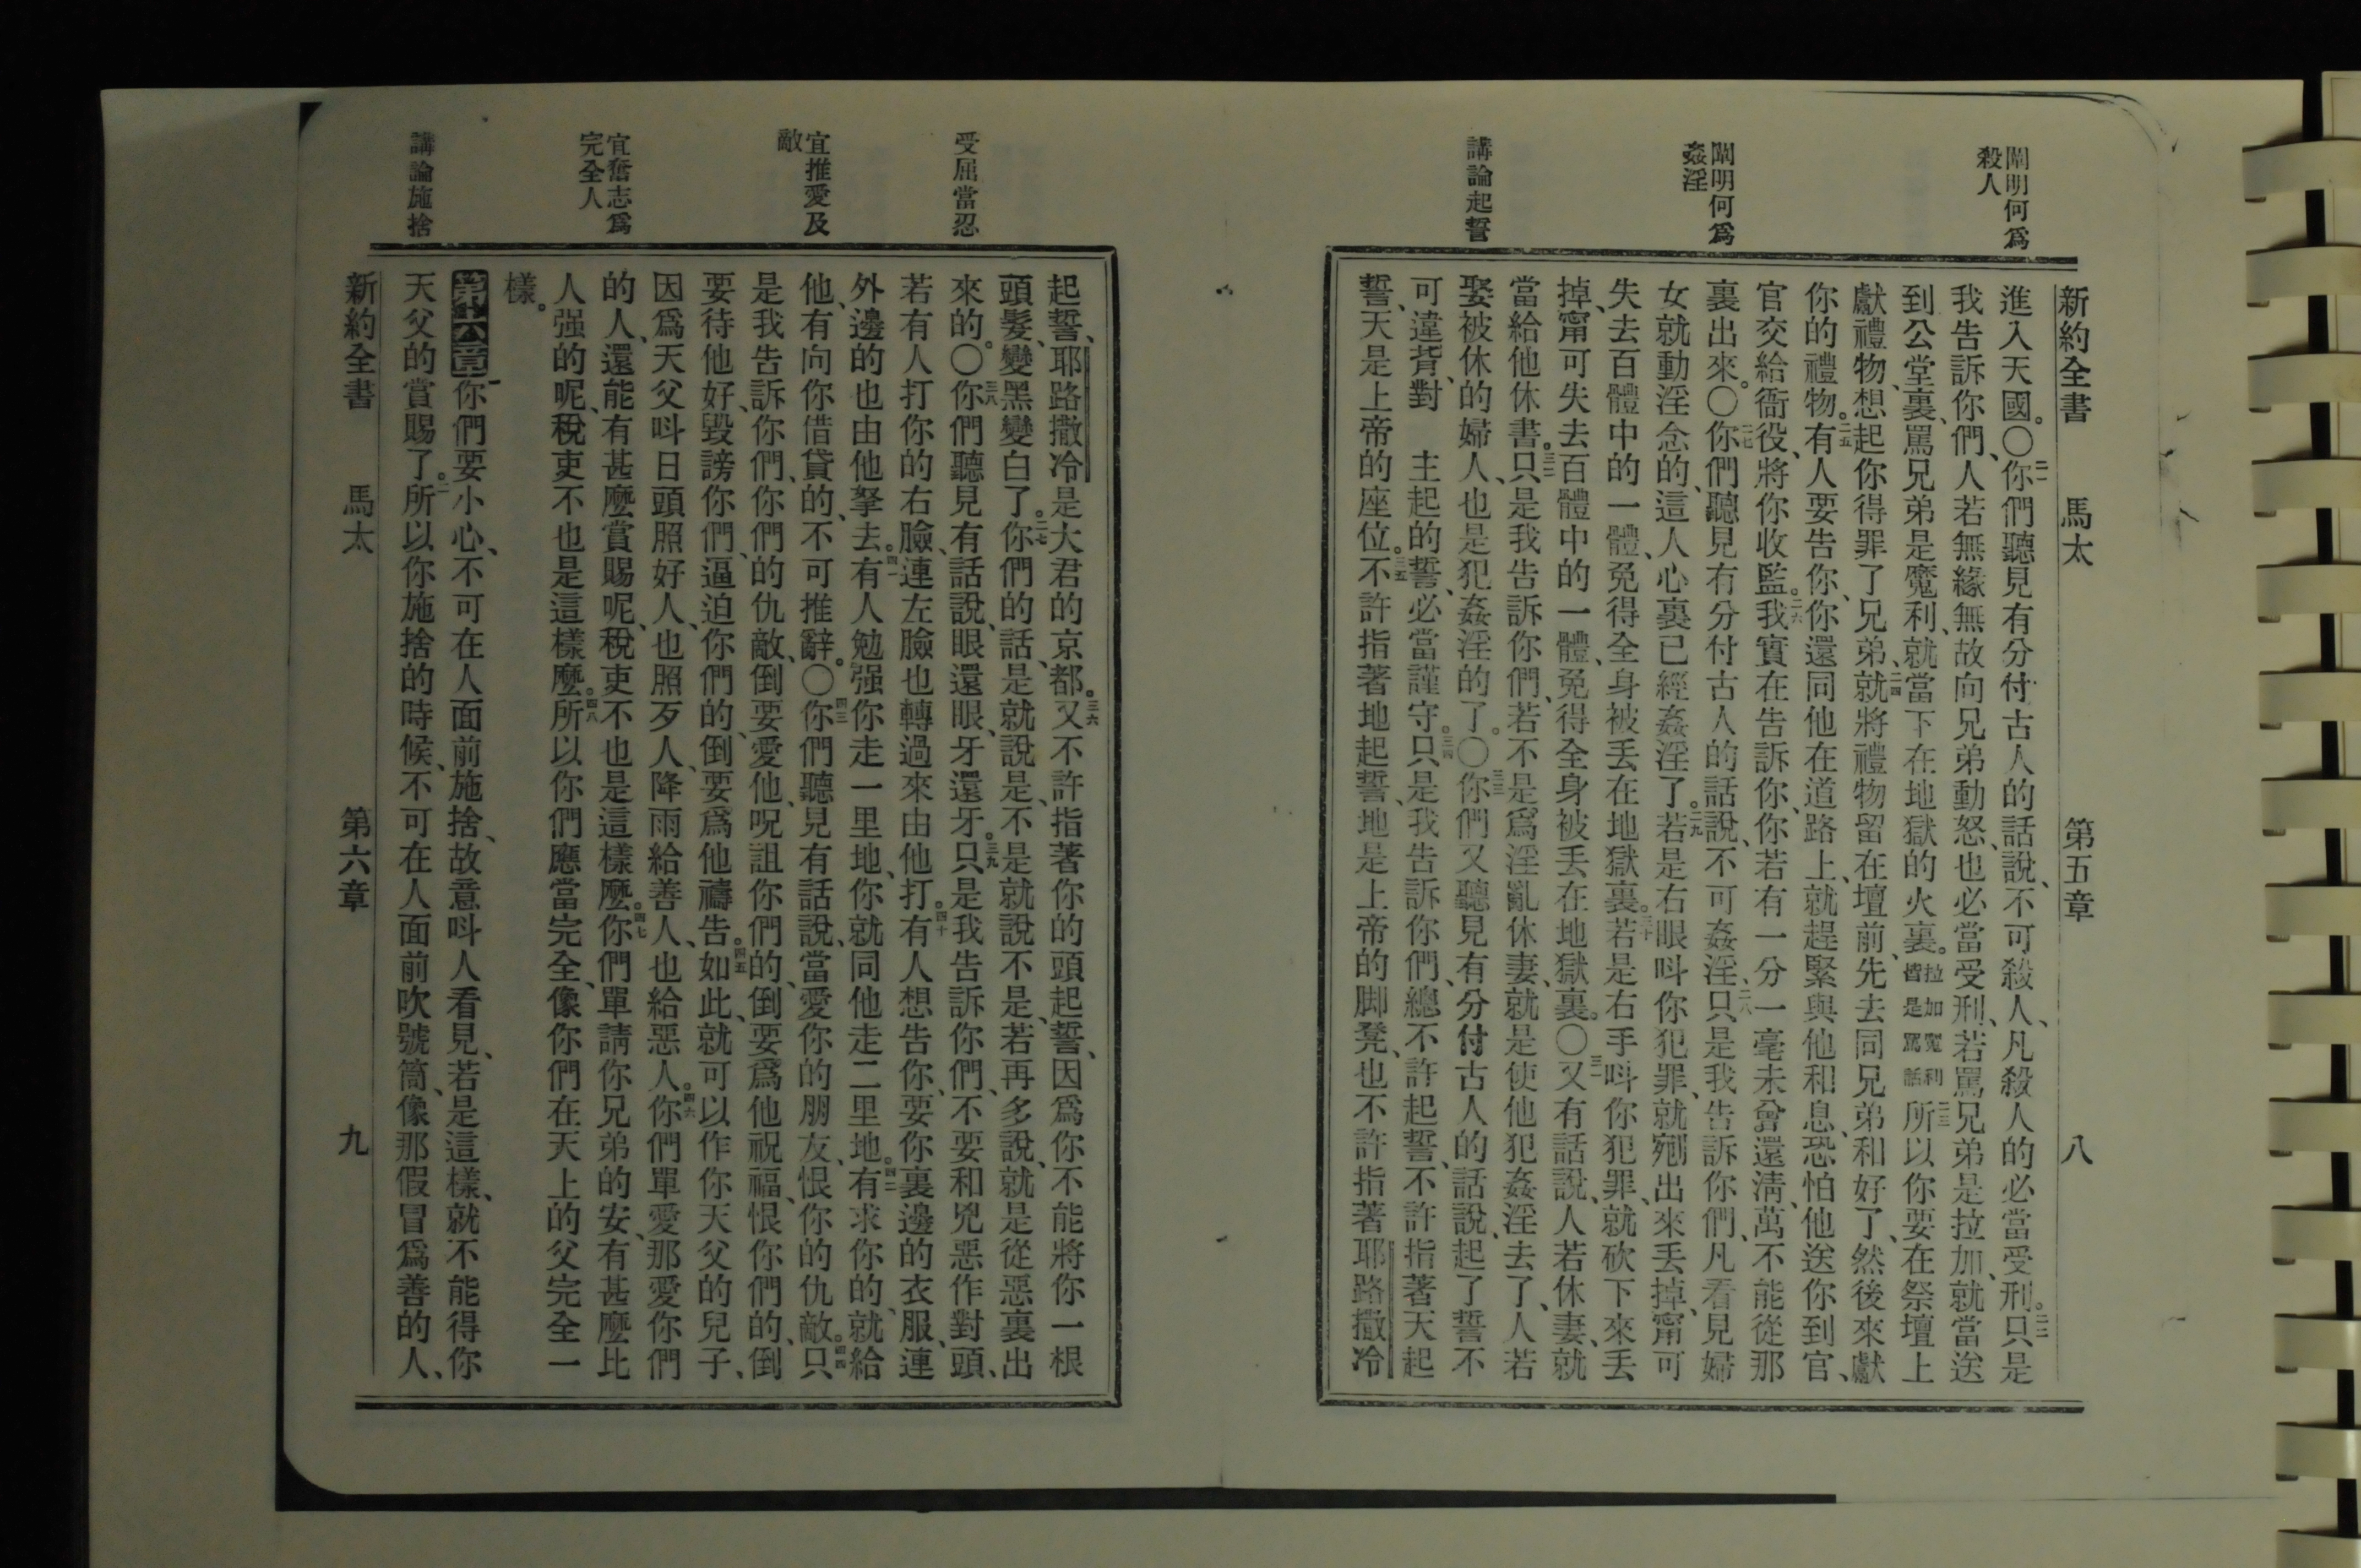 闡明何爲
殺人
闡明何爲
姦淫
講論起誓
新約全書 馬太 第五章 八
進入天國。〇二一你們聽見有分付古人的話說、不可殺人、凡殺人的必當受刑。二二只是
我告訴你們、人若無緣無故向兄弟動怒、也必當受刑、若罵兄弟是拉加、就當送
到公堂裏、罵兄弟是魔利、就當下在地獄的火裏。拉加魔利皆是罵話二三所以你要在祭壇上
獻禮物、想起你得罪了兄弟、二四就將禮物留在壇前、先去同兄弟和好了、然後來獻
你的禮物。二五有人要告你、你還同他在道路上、就趕緊與他和息、恐怕他送你到官、
官交給衙役、將你收監。二六我實在告訴你、你若有一分一毫未曾還清、萬不能從那
裏出來。〇二七你們聽見有分付古人的話說、不可姦淫、二八只是我告訴你們、凡看見婦
女就動淫念的、這人心裏已經姦淫了。二九若是右眼呌你犯罪、就剜出來丟掉、甯可
失去百體中的一體、免得全身被丟在地獄裏。三十若是右手呌你犯罪、就砍下來丟
掉、甯可失去百體中的一體、免得全身被丟在地獄裏。〇三一又有話說、人若休妻、就
當給他休書。三二只是我告訴你們、若不是爲淫亂休妻、就是使他犯姦淫去了、人若
娶被休的婦人、也是犯姦淫的了。〇三三你們又聽見有分付古人的話說、起了誓不
可違背、對 主起的誓、必當謹守。三四只是我告訴你們、總不許起誓、不許指著天起
誓、天是上帝的座位。三五不許指著地起誓、地是上帝的脚凳、也不許指著耶路撒冷
受屈當忍
宜推愛及
敵
宜奮志爲
完全人
講論施捨
起誓、耶路撒冷是大君的京都。三六又不許指著你的頭起誓、因爲你不能將你一根
頭髮、變黑變白了。三七你們的話、是就說是、不是就說不是、若再多說、就是從惡裏出
來的。〇三八你們聽見有話說、眼還眼、牙還牙。三九只是我告訴你們、不要和兇惡作對頭、
若有人打你的右臉、連左臉也轉過來由他打。四十有人想告你、要你裏邊的衣服、連
外邊的也由他拏去。四一有人勉强你走一里地、你就同他走二里地。四二有求你的、就給
他、有向你借貸的、不可推辭。〇四三你們聽見有話說、當愛你的朋友、恨你的仇敵。四四只
是我告訴你們、你們的仇敵、倒要愛他、呪詛你們的、倒要爲他祝福、恨你們的、倒
要待他好、毀謗你們、逼迫你們的、倒要爲他禱告。四五如此、就可以作你天父的兒子、
因爲天父呌日頭照好人、也照歹人、降雨給善人、也給惡人。四六你們單愛那愛你們
的人、還能有甚麼賞賜呢、稅吏不也是這樣麼。四七你們單請你兄弟的安、有甚麼比
人强的呢、稅吏不也是這樣麼。四八所以你們應當完全、像你們在天上的父完全一
樣。
第六章一你們要小心、不可在人面前施捨、故意呌人看見、若是這樣、就不能得你
天父的賞賜了。二所以你施捨的時候、不可在人面前吹號筒、像那假冒爲善的人、
新約全書 馬太 第六章 九